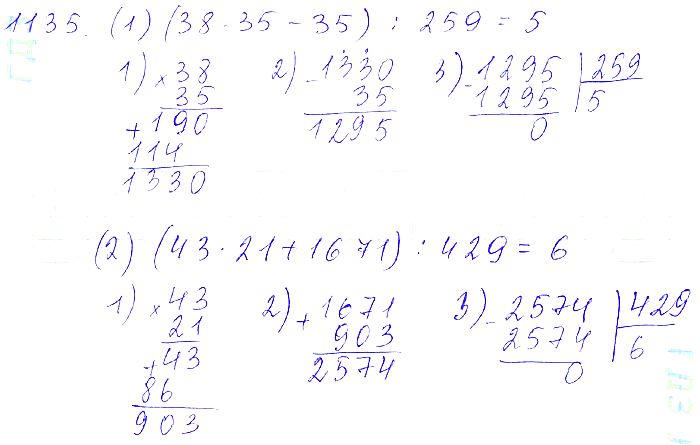 1135. (1) (38 · 35 − 35) : 259 = 5
1) × 38 2) − 1330 3) − 1295 | 259
35 35 1295 5
+ 190 1295 0
114
1330
(2) (43 · 21 + 1671) : 429 = 6
1) × 43 2) + 1671 3) − 2574 | 429
21 903 2574 6
+ 43 2574 0
86
903